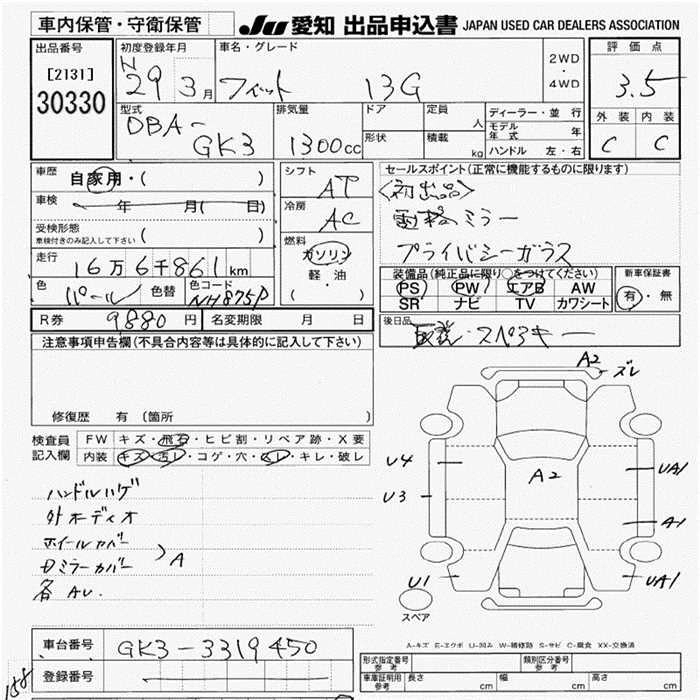 車内保管・守衛保管
JU 愛知 出品申込書 JAPAN USED CAR DEALERS ASSOCIATION
出品番号
[2131]
30330
初度登録年月
29 3 月
車名・グレード
フィット 13G
2WD
・
4WD
評価点
3.5
外装 内装
C C
型式
DBA-
GK3
排気量
1300cc
ドア
形状
定員
人
積載
kg
ディーラー・並行
モデル年式 年
ハンドル 左・右
車歴
自家用・( )
車検
年 月( 日)
受検形態
車検付きのみ記入して下さい ( )
走行
16万6千861km
色
パール
色替
色コード
NH875P
R券 9,880 円
名変期限 月 日
シフト
AT
冷房
AC
燃料
ガソリン
軽油
( ・ )
セールスポイント(正常に機能するものに限ります)
<初出品>
電格ミラー
プライバシーガラス
装備品(純正品に限り○をつけてください)
PS PW エアB AW
SR ナビ TV カワシート
新車保証書
有・無
後日品
取説・スペアキー
注意事項申告欄(不具合内容等は具体的に記入して下さい)
修復歴 有 〔箇所
検査員
記入欄
FW キズ・飛石・ヒビ割・リペア跡・X要
内装 キズ・汚レ・コゲ・穴・スレ・キレ・破レ
ハンドルハゲ
外オーディオ
ホイールカバー
ミラーカバー
) A
各AU.
A2
ズレ
U4
A2
UA1
U3
A1
U1
UA1
スペア
A-キズ E-エクボ U-凹み W-補修跡 S-サビ C-腐食 XX-交換済
車台番号 GK3-3319450
登録番号
158
形式指定番号
参考
類別区分番号
参考
車庫証明用
参考
長さ cm 幅 cm 高さ cm